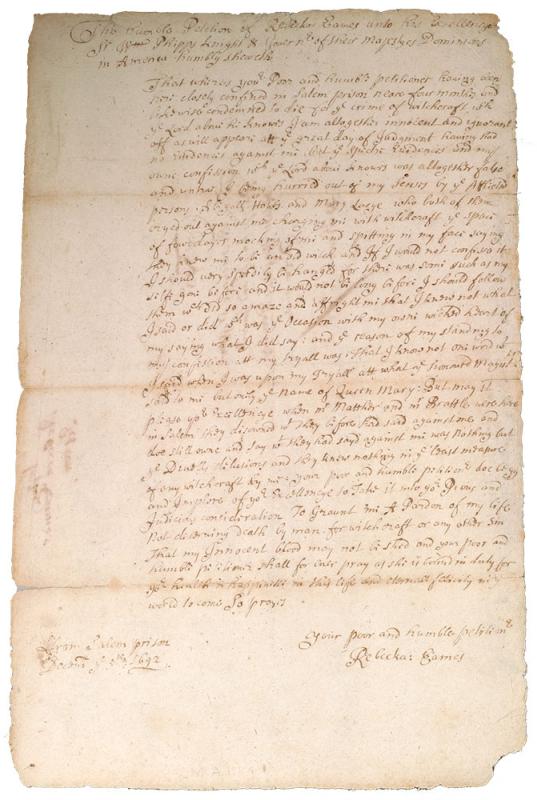 The Humble Petition of Rebeckah Eames unto his Excellencye
Sr Wm Phipps knight & Govenr of their Majestyes Dominions
in America humbly sheweth
That wheras yor Poor and humble petitioner having been
here closely confined in Salem prison neare four months and
likewise condemned to die for ye crime of witchcraft wch
ye Lord above he knowes I am altogether innocent and ignorant
off as will appeare att ye great day of Judgment having had
no Evidences against me but ye Spectre Evidences and my
owne confession wch ye Lord above knowes was altogether false
and untrue I being hurried out of my Senses by ye Afflicted
persons Abigall Hobbs and Mary Lacye who both of them
cryed out against me charging me with witchcraft ye space
of four dayes mocking of me and spitting in my face saying
they knew me to be an old witch and If I would not confesse it
I should very Spedily be hanged for there was some such as my
selfe gone before and it would not be long before I should follow
them wch did so amaze and affright me that I knew not what
I said or did wch was ye Occasion with my owne wicked heart of
my saying what I did say: and ye reason of my standing to
my confession att my tryall was: That I know not one word wt
I said when I was upon my Tryall att what ye honourd Majestts
said to me but only ye Name of Queen Mary: But may it
please yor Excellencye when mr Matther and mr Brattle were here
in Salem they disowned wt they before had said against me and
doe still owne and say wt they had sayd against me was Nothing but
ye Divells delusions and they knew nothing in ye least measure
of any witchcraft by me: your poor and humble petitionr doe begg
and Implore of yor Excellencye to Take it into yor Pious and
Judicious consideration To Graunt me A Pardon of my life
Not deserving death by man for witchcraft or any other Sin
That my Innocent blood may not be shed and your poor and
humble petitioner shall for ever pray as she is bound in duty for
yor health & happiness in this life and eternall felicity in ye
world to come So prays
Your poor and humble petitionr
Rebeckah Eames
From Salem prison
Decemr ye 5th 1692